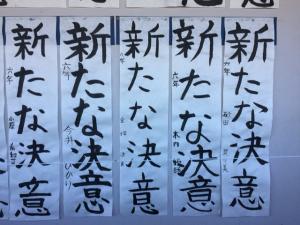 新たな決意
六年
新たな決意
六年
今井 ひかり
新たな決意
六年
新たな決意
六年
木内
新たな決意
六年